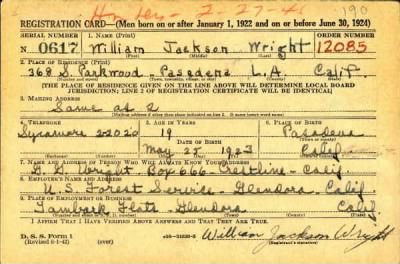 190
2-27-46
REGISTRATION CARD—(Men born on or after January 1, 1922 and on or before June 30, 1924)
SERIAL NUMBER 1. NAME (Print) ORDER NUMBER
N 0617 William Jackson Wright 12085
(First) (Middle) (Last)
2. PLACE OF RESIDENCE (Print)
368 S. Parkwood Pasadena L.A. Calif.
(THE PLACE OF RESIDENCE GIVEN ON THE LINE ABOVE WILL DETERMINE LOCAL BOARD
JURISDICTION; LINE 2 OF REGISTRATION CERTIFICATE WILL BE IDENTICAL)
3. MAILING ADDRESS
Same as 2
4. TELEPHONE 5. AGE IN YEARS 6. PLACE OF BIRTH
Sycamore 2-2020 19 Pasadena
DATE OF BIRTH
May 25 1923 Calif
7. NAME AND ADDRESS OF PERSON WHO WILL ALWAYS KNOW YOUR ADDRESS
Wright Box 666 - Crestline - Calif.
8. EMPLOYER'S NAME AND ADDRESS
U.S. Forest Service - Glendora, Calif
9. PLACE OF EMPLOYMENT OR BUSINESS
Tanbark Flats - Glendora Calif
I AFFIRM THAT I HAVE VERIFIED ABOVE ANSWERS AND THAT THEY ARE TRUE.
D. S. S. Form 1
William Jackson Wright
(Registrant's signature)